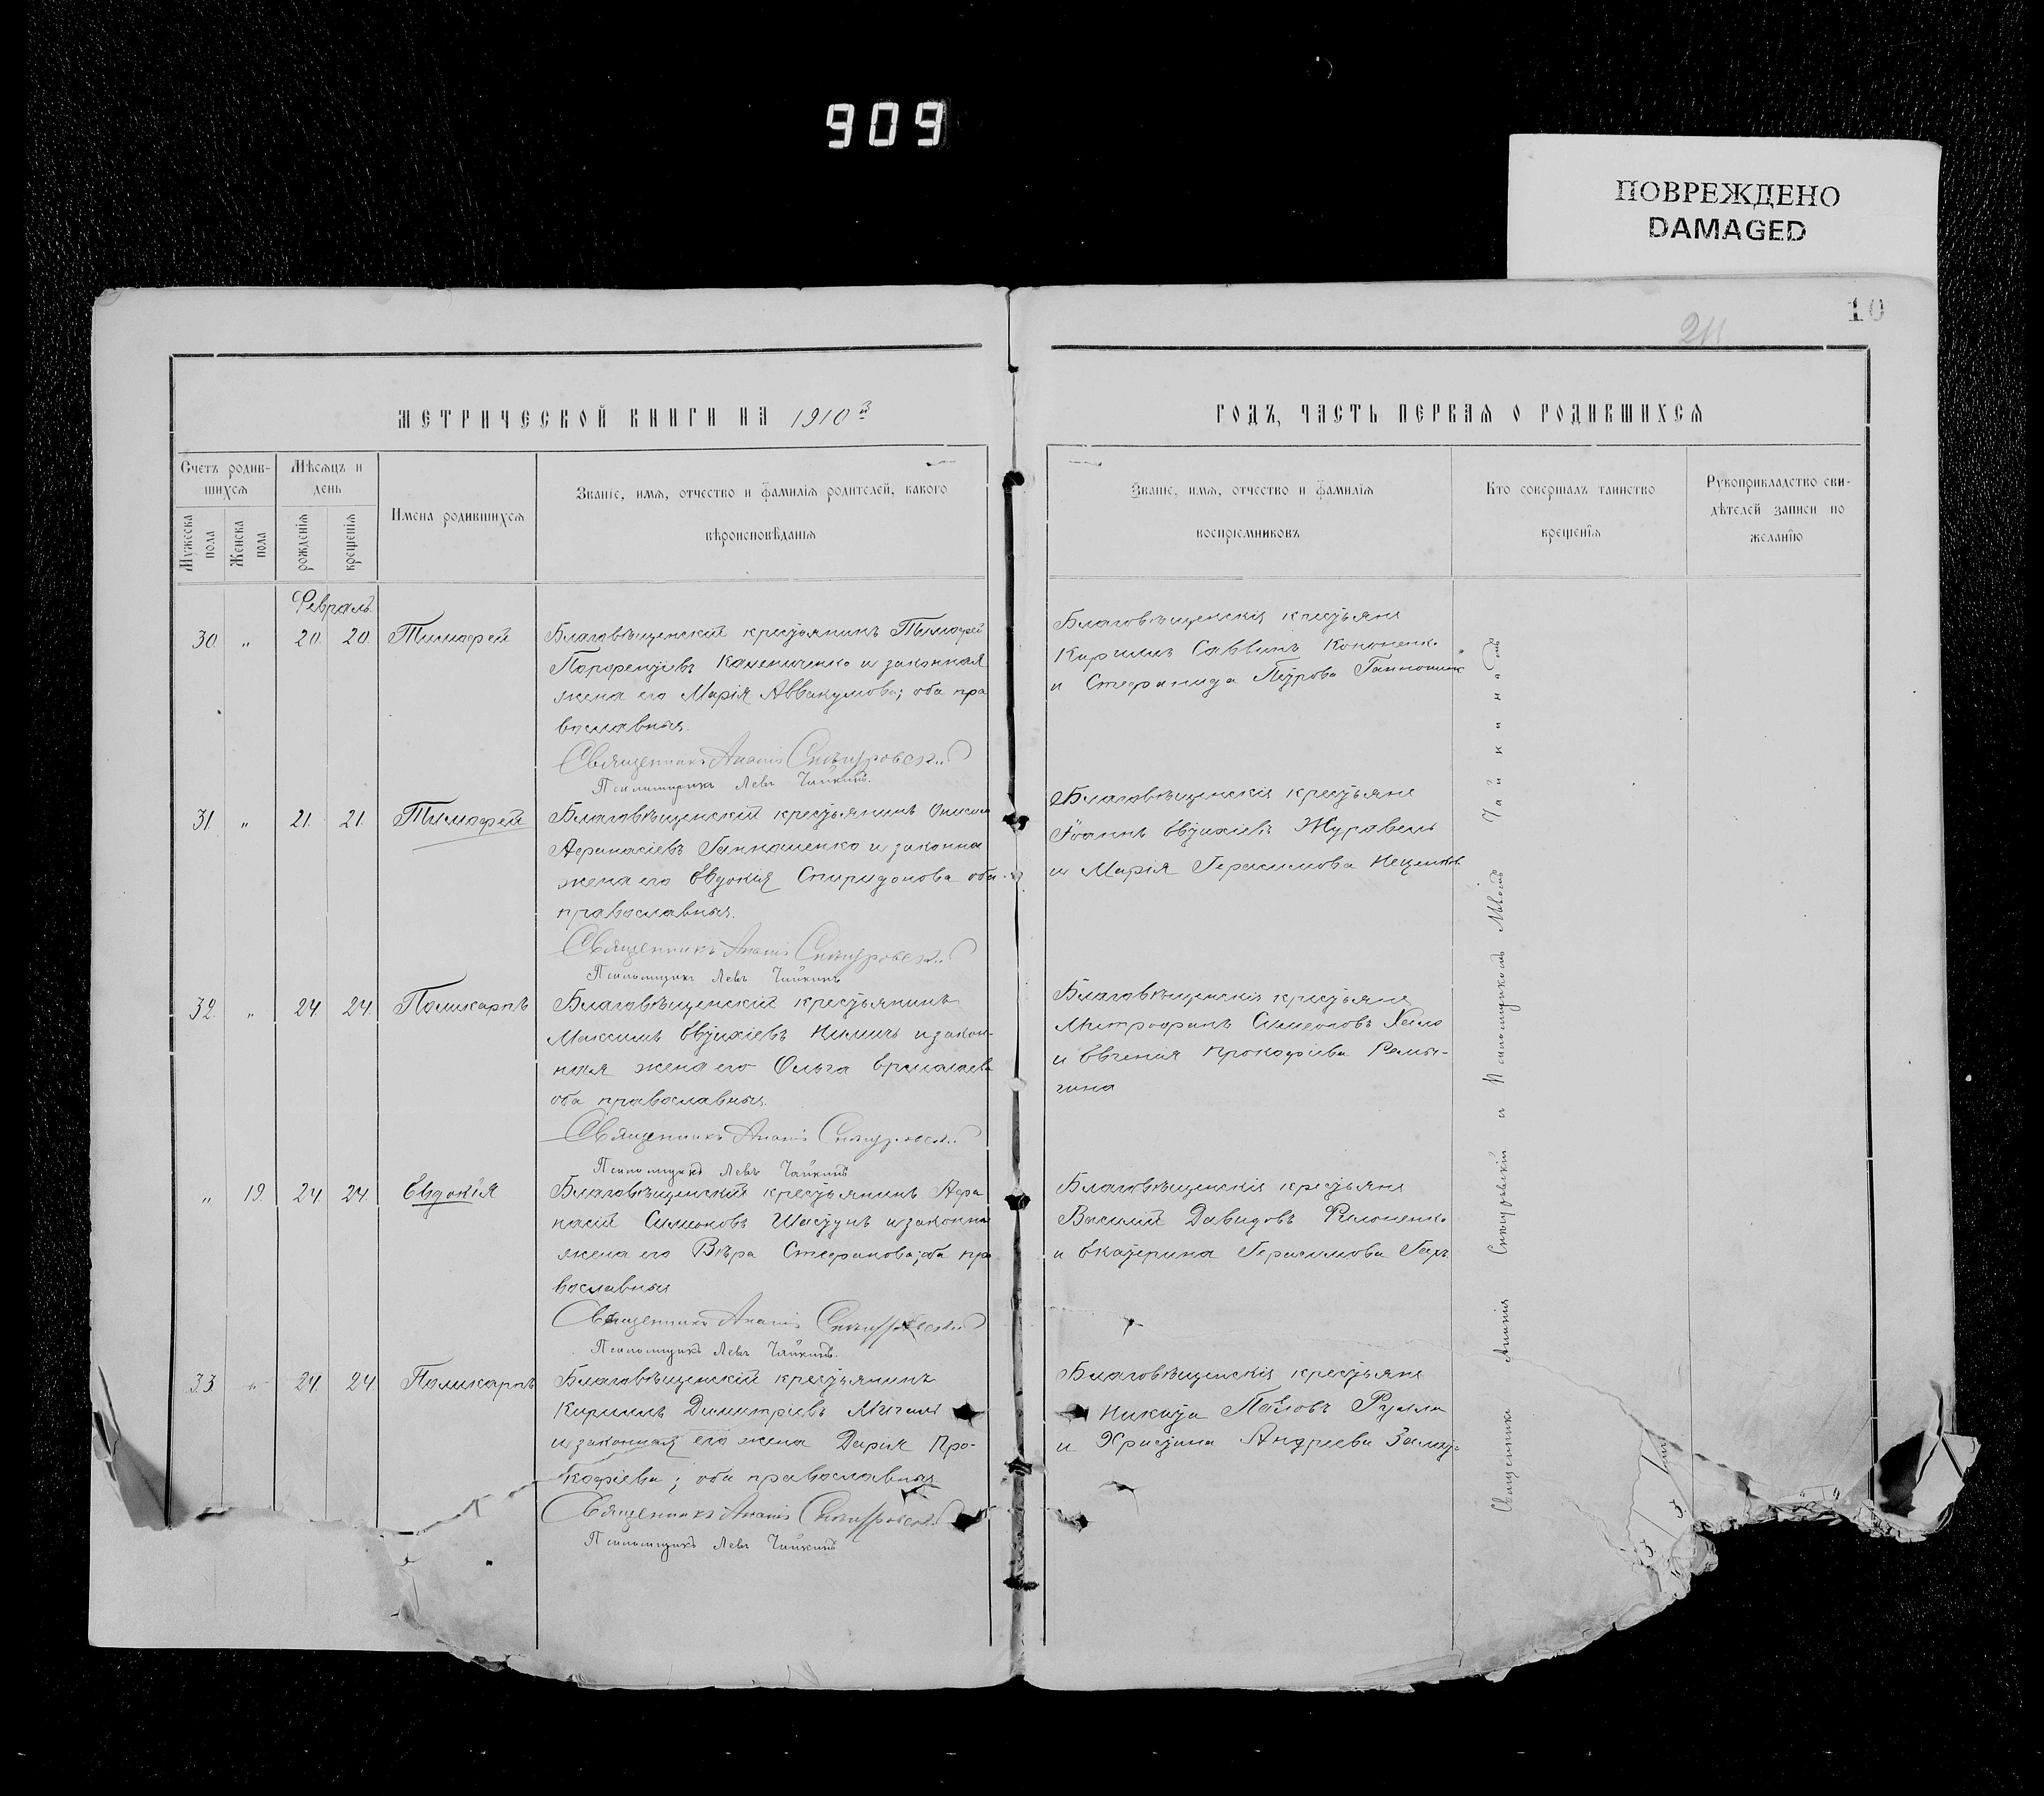 909
ПОВРЕЖДЕНО
DAMAGED
10
МЕТРИЧЕСКОЙ КНИГИ НА 1910й
ГОДЪ, ЧАСТЬ ПЕРВАЯ О РОДИВШИХСЯ
Счетъ родив-
шихся
Мужеска пола
Женска пола
Мѣсяцъ и
день
рожденія
крещенія
Имена родившихся
Званіе, имя, отчество и фамилія родителей, какого
вѣроисповѣданія
Званіе, имя, отчество и фамилія
воспріемниковъ
Кто совершалъ таинство
крещенія
Рукоприкладство сви-
дѣтелей записи по
желанію
Февраль
30 " 20 20 Тимофей
Благовѣщенскій крестьянинъ Тимофей
Парфентіевъ Калениченко и законная
жена его Марія Аввакумова; оба пра
вославныя.
Священникъ Ананія
Псаломщикъ Левъ Чайкинъ.
Благовѣщенскія крестьяне
Кириллъ Саввинъ Кононенко
и Стефанида Петрова
31 " 21 21 Тимофей
Благовѣщенскій крестьянинъ Онисим
Афанасіевъ Ганношенко и законна
жена его Евдокія Спиридонова оба
православныя.
Священникъ Ананія
Псаломщикъ Левъ Чайкинъ
Благовѣщенскія крестьяне
Іоаннъ Евтихіевъ Журавель
и Марія Герасимова
32 " 24 24 Поликарпъ
Благовѣщенскій крестьянинъ
Максимъ Евтихіевъ и закон-
ная жена его Ольга Ермолаева
оба православныя.
Священникъ Ананія
Псаломщикъ Левъ Чайкинъ
Благовѣщенскія крестьяне
Митрофанъ Симеоновъ
и Евгенія Прокофіева
" 19 24 24 Евдокія
Благовѣщенскій крестьянинъ Афа
насій Симоновъ и законна
жена его Вѣра Стефанова; оба пра
вославныя
Священникъ Ананія
Псаломщикъ Левъ Чайкинъ.
Благовѣщенскія крестьяне
Василій Давидовъ Филоненко
и Екатерина Герасимова
33 " 24 24 Поликарпъ
Благовѣщенскій крестьянинъ
Кириллъ Димитріевъ
и законная его жена Дарія Про-
кофіева; оба православныя
Священникъ Ананія
Псаломщикъ Левъ Чайкинъ
Благовѣщенскія крестьяне
Никита Павловъ
и Христина Андреева
Священникъ Ананія и Псаломщикомъ Львомъ Чайкинымъ